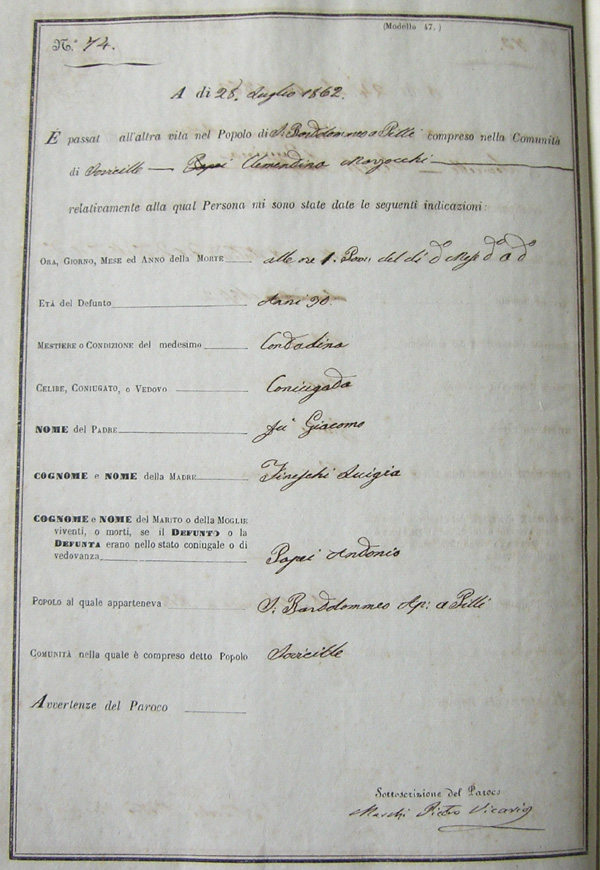 (Modello 47.)
N.º 74.
A di 28. Luglio 1862.
È passat all'altra vita nel Popolo di S. Bartolommeo a Pilli compreso nella Comunità
di Sovicille — Clementina Marzocchi
relativamente alla qual Persona mi sono state date le seguenti indicazioni:
Ora, Giorno, Mese ed Anno della Morte alle ore 1. Pom: del dì dº Mese dº a dº
Età del Defunto Anni 30.
Mestiere o Condizione del medesimo Contadina
Celibe, Coniugato, o Vedovo Coniugata
NOME del Padre fu Giacomo
COGNOME e NOME della Madre Fineschi Luigia
COGNOME e NOME del Marito o della Moglie
viventi, o morti, se il Defunto o la
Defunta erano nello stato coniugale o di
vedovanza Papei Antonio
Popolo al quale apparteneva S. Bartolommeo Ap: a Pilli
Comunità nella quale è compreso detto Popolo Sovicille
Avvertenze del Paroco
Sottoscrizione del Paroco
Macchi Pietro Vicario